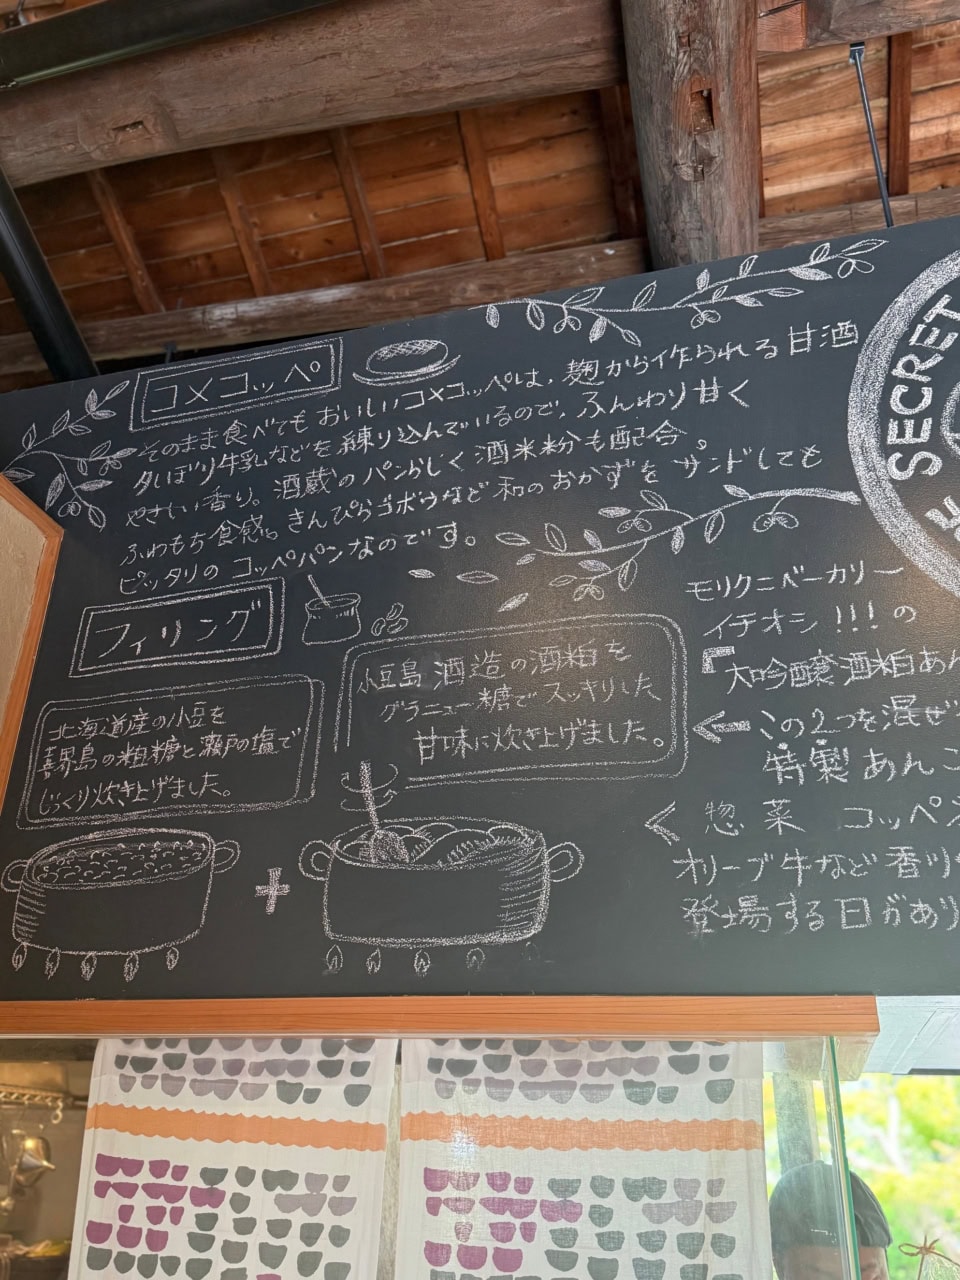 コメコッペ
そのまま食べても おいしいコメコッペは、麹から作られる甘酒
夕いぼり牛乳などを練り込んでいるので、ふんわり甘く
やさしい香り。酒蔵のパンらしく酒米粉も配合。
ふわもち食感。きんぴらゴボウなど和のおかずを サンドしても
ピッタリの コッペパンなのです。
フィリング
北海道産の小豆を
喜界島の粗糖と瀬戸の塩で
じっくり炊き上げました。
+
小豆島 酒造の酒粕を
グラニュー糖で スッキリした
甘味に炊き上げました。
モリクニベーカリー
イチオシ!!!の
『大吟醸酒粕あん
この2つを混ぜ
特製あんこ
惣菜 コッペ
オリーブ牛など 香川
登場する日があり
SECRET